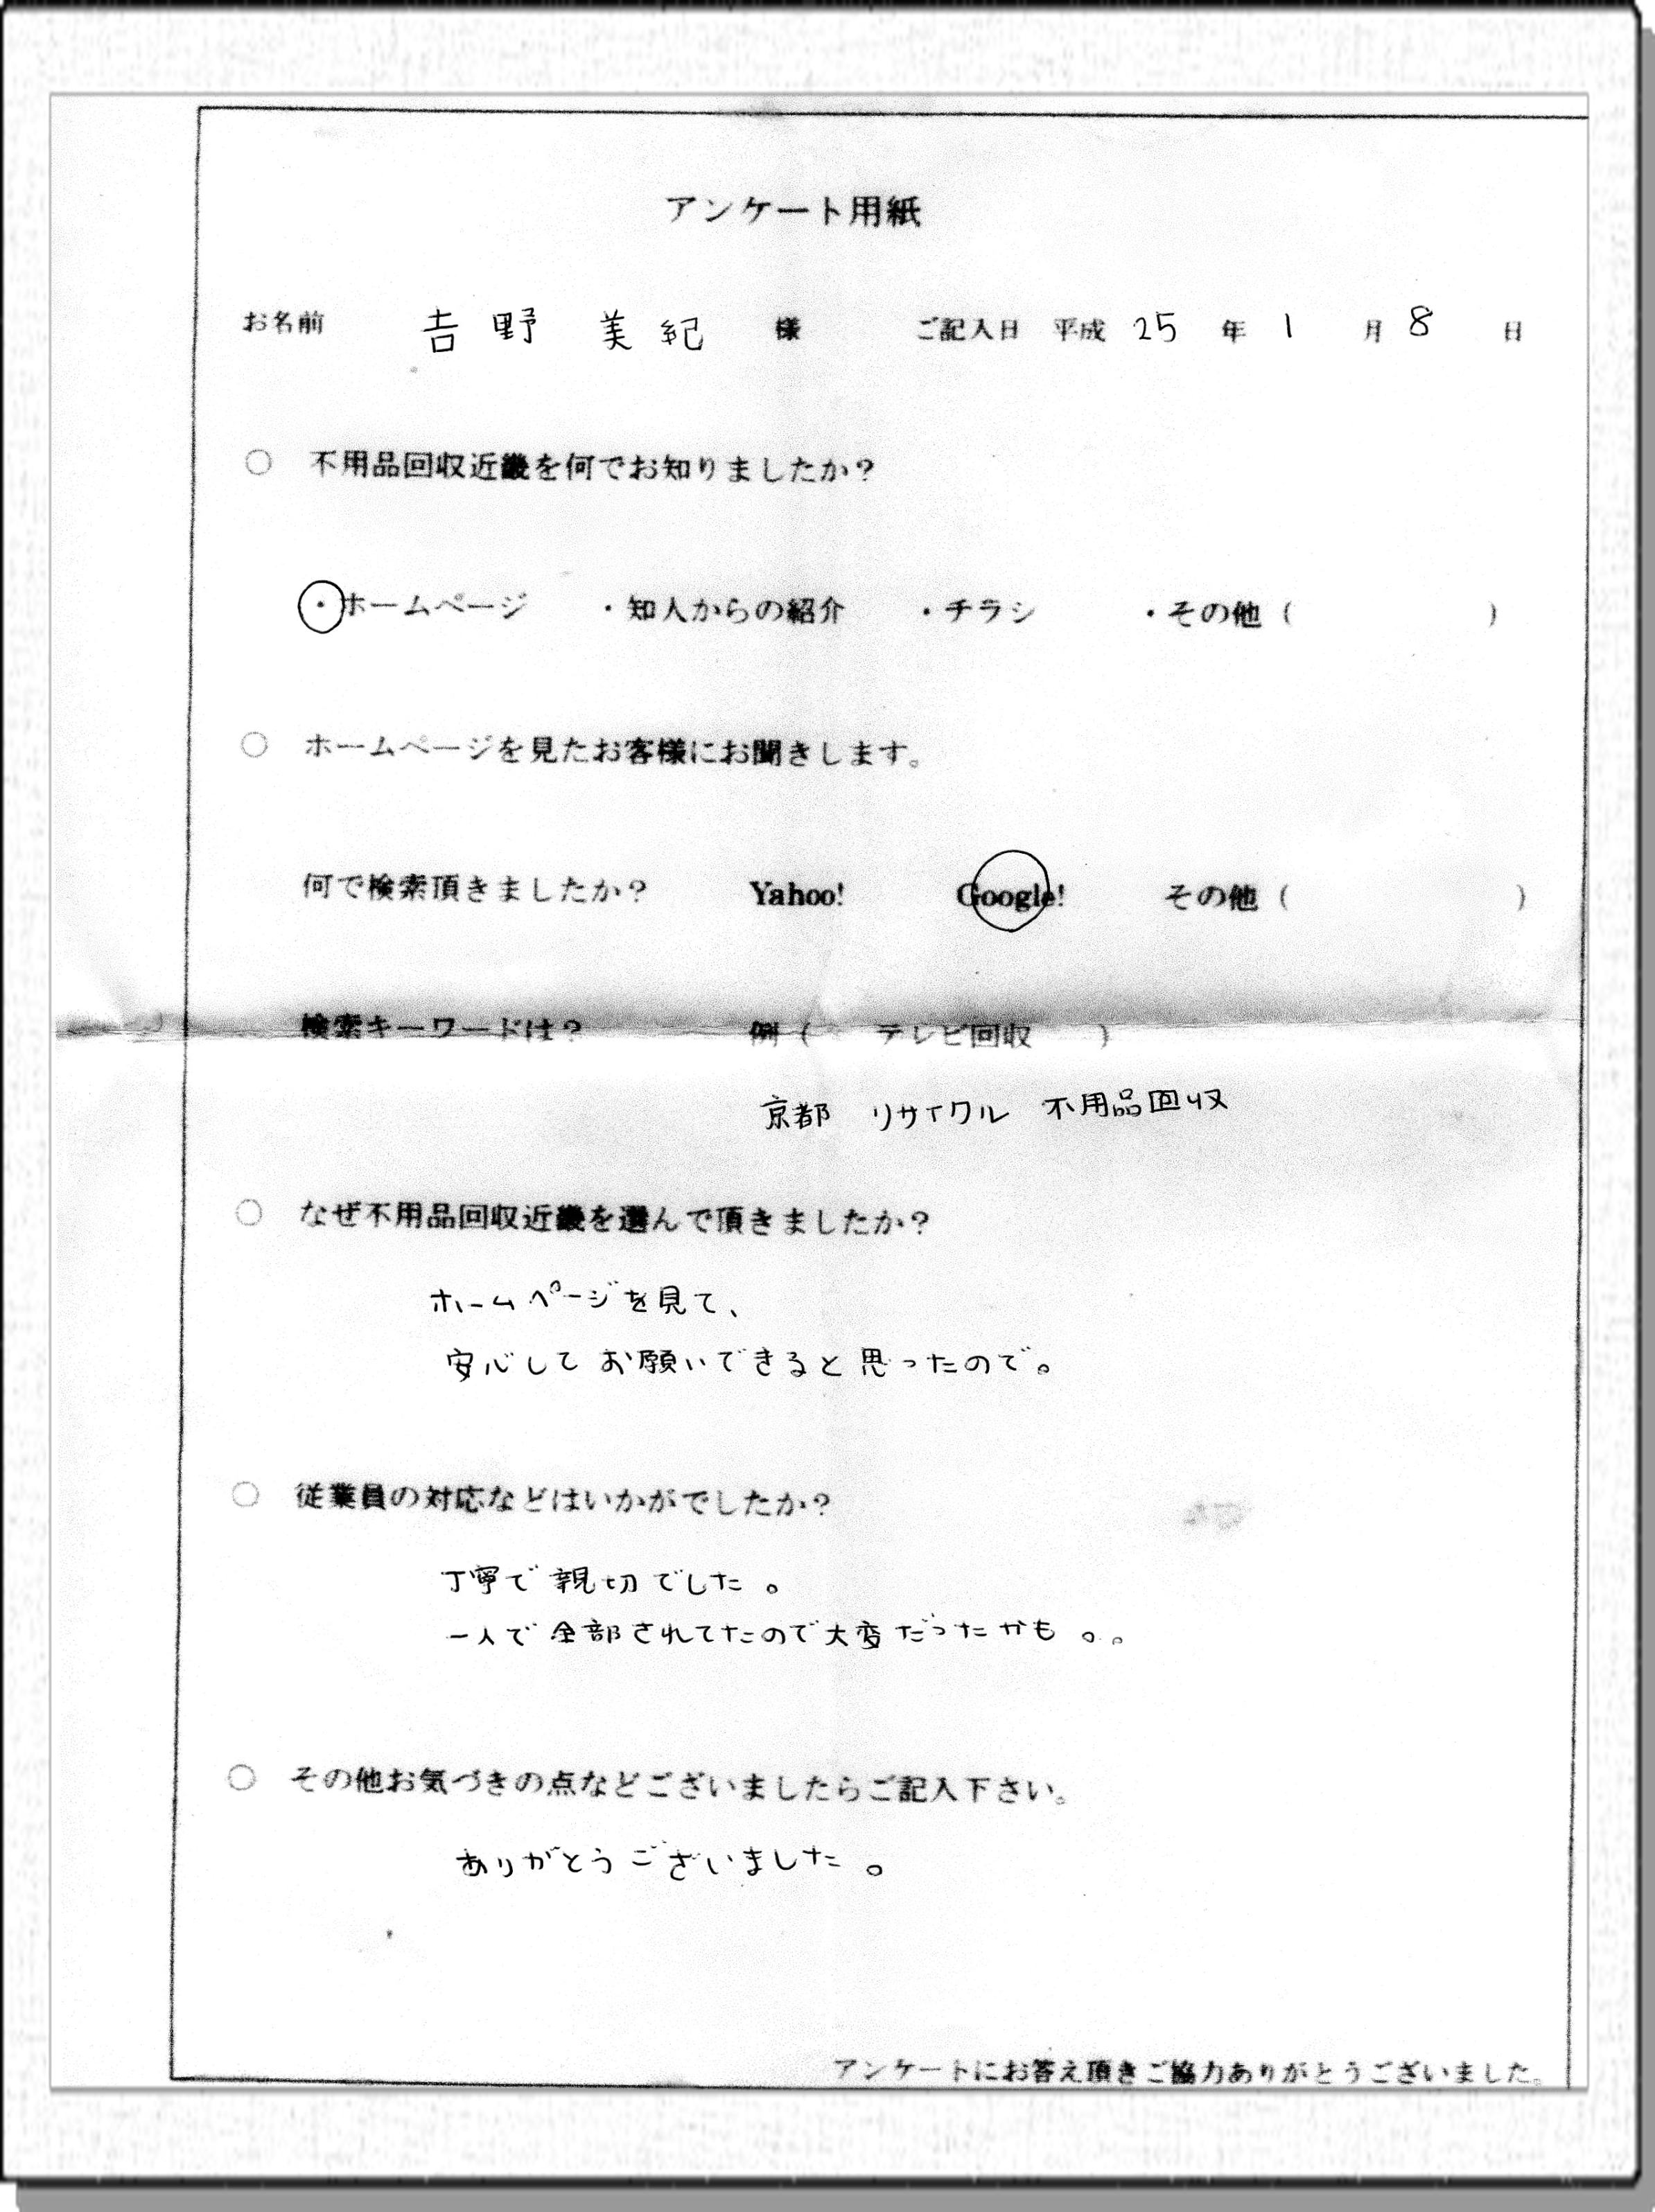 アンケート用紙
お名前 吉野 美紀 様 ご記入日 平成 25 年 1 月 8 日
○ 不用品回収近畿を何でお知りましたか？
・ホームページ ・知人からの紹介 ・チラシ ・その他（ ）
○ ホームページを見たお客様にお聞きします。
何で検索頂きましたか？ Yahoo! Google! その他（ ）
検索キーワードは？ 例（ テレビ回収 ）
京都 リサイクル 不用品回収
○ なぜ不用品回収近畿を選んで頂きましたか？
ホームページを見て、
安心してお願いできると思ったので。
○ 従業員の対応などはいかがでしたか？
丁寧で親切でした。
一人で全部されてたので大変だったかも。。
○ その他お気づきの点などございましたらご記入下さい。
ありがとうございました。
アンケートにお答え頂きご協力ありがとうございました。